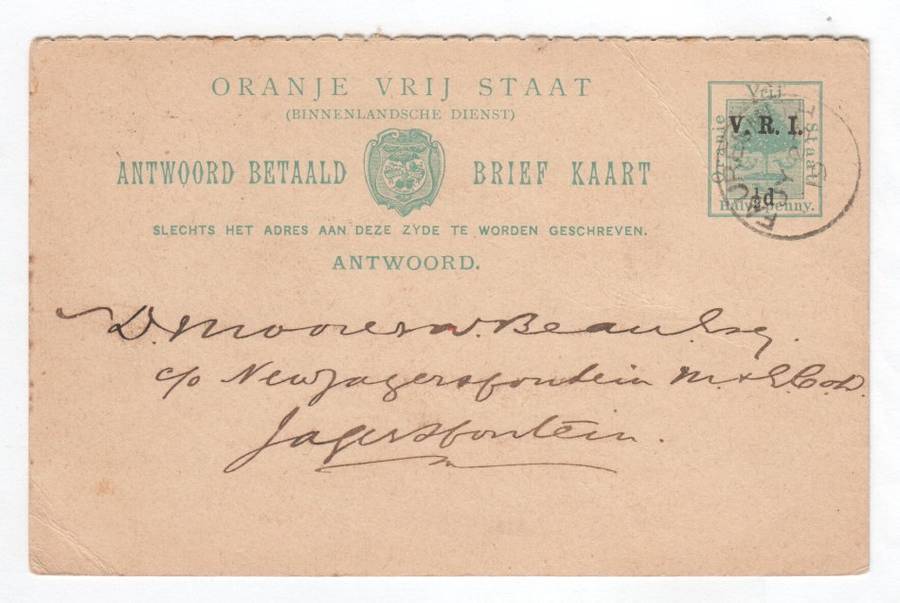 ORANJE VRIJ STAAT
(BINNENLANDSCHE DIENST)
ANTWOORD BETAALD BRIEF KAART
SLECHTS HET ADRES AAN DEZE ZYDE TE WORDEN GESCHREVEN.
ANTWOORD.
Oranje Vrij Staat
V. R. I.
½d
Halve penny.
D. Beau Esq.
c/o New Jagersfontein M. & E. Co. Ld.
Jagersfontein.